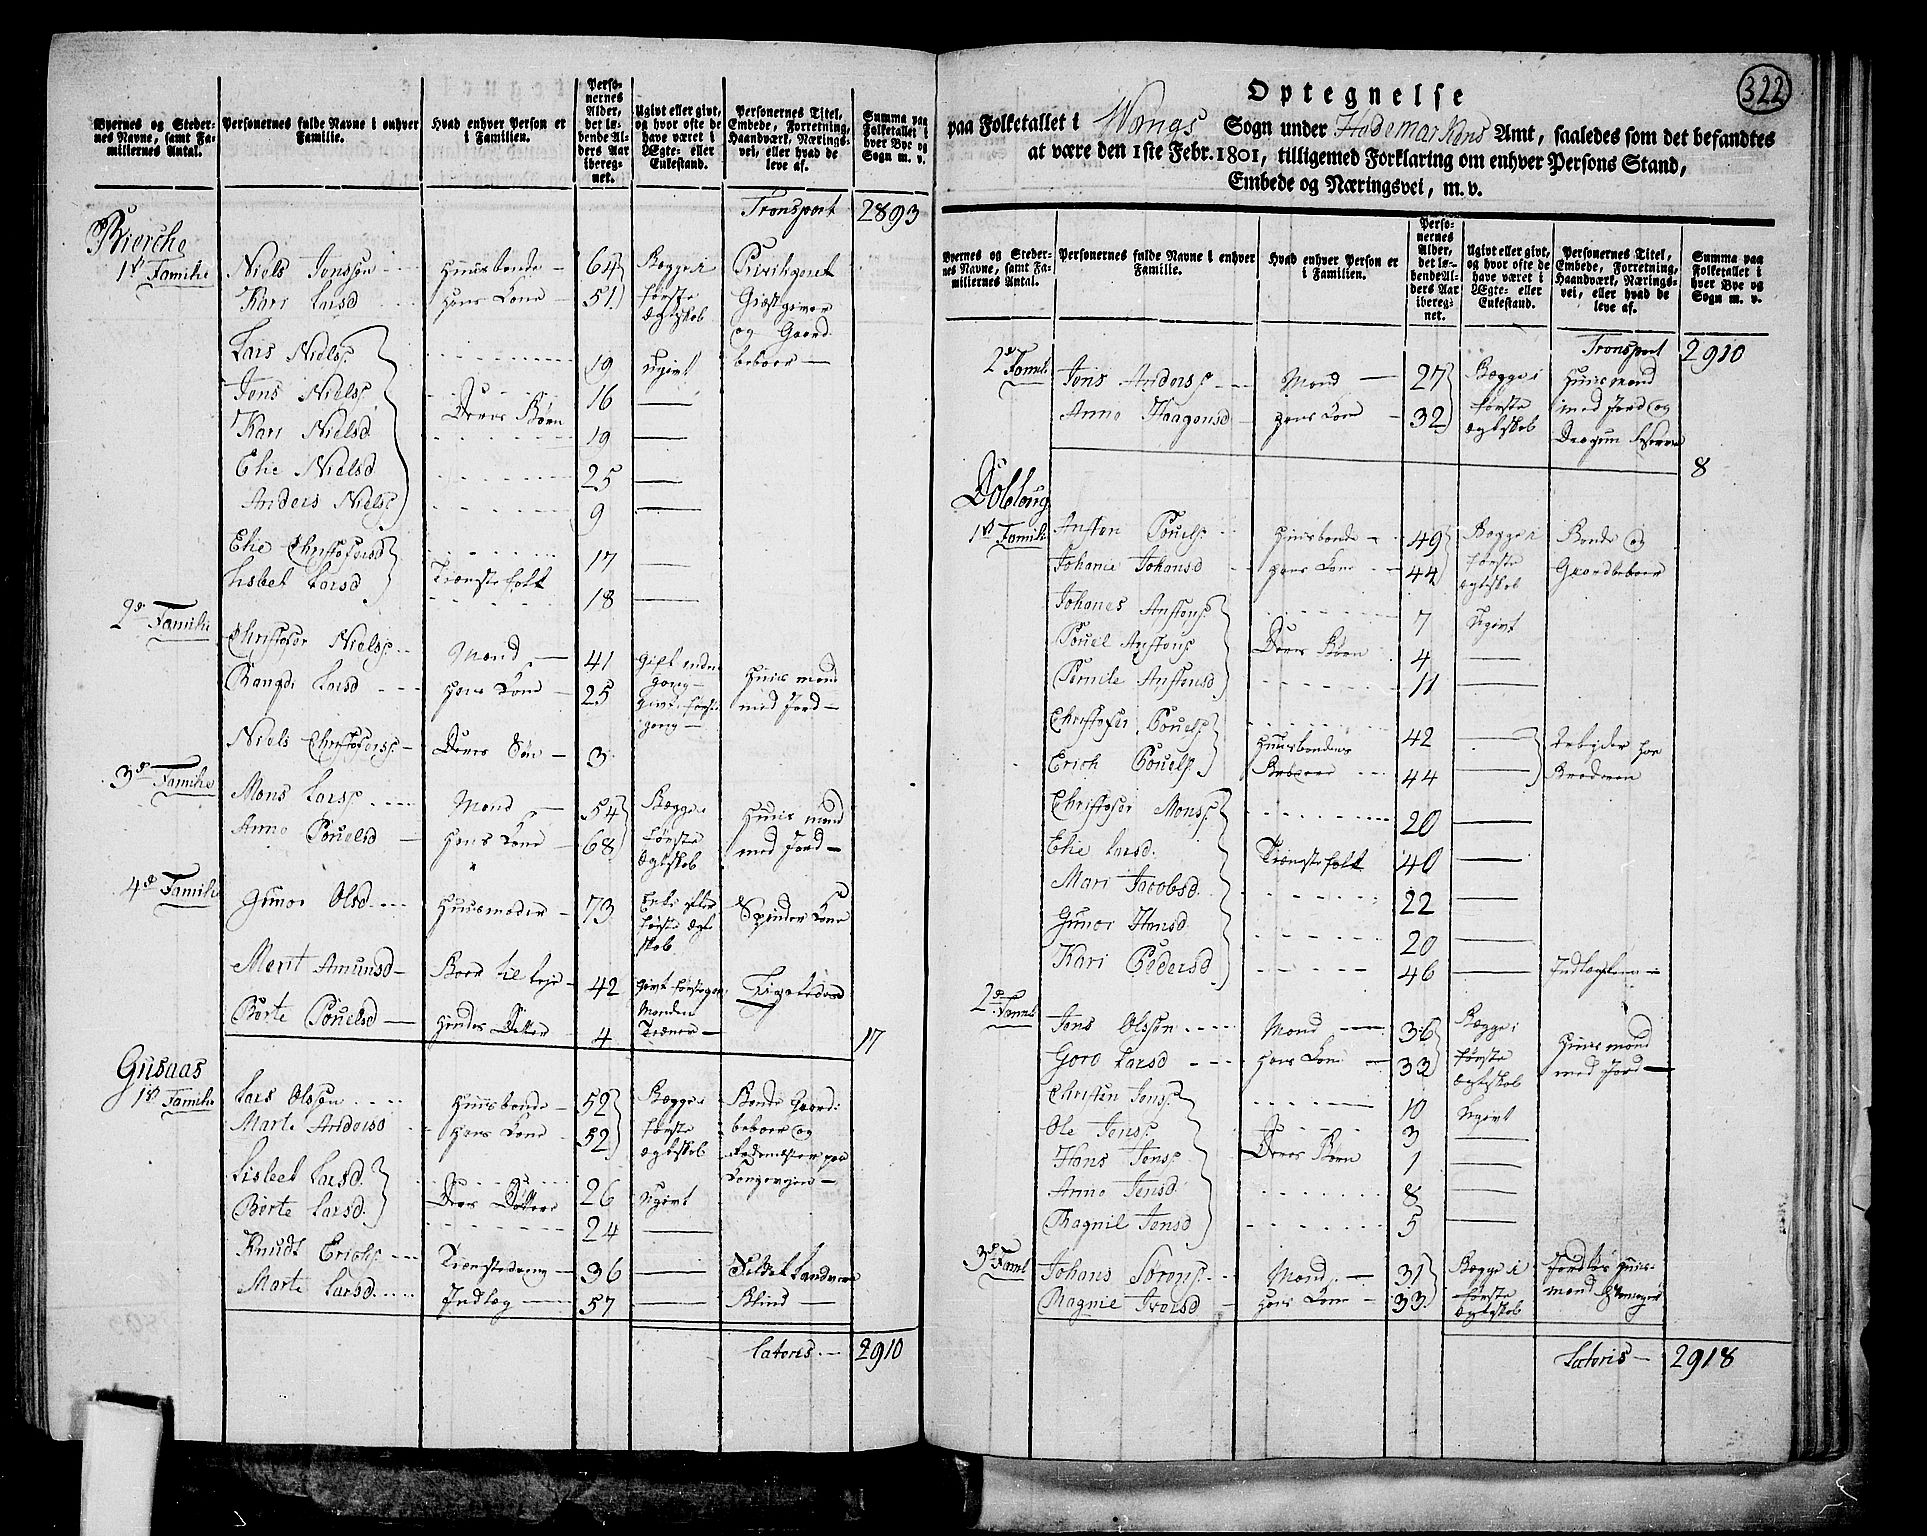 Byernes og Steder-
nes Navne, samt Fa-
miliernes Antal.
Personernes fulde Navne i enhver
Familie.
Hvad enhver Person er
i Familien.
Perso-
nernes
Alder,
det lø-
bende Al-
ders Aar
ibereg-
net.
Ugivt eller givt,
og hvor ofte de
have været i
Ægte- eller
Enkestand.
Personernes Titel,
Embede, Forretning,
Haandværk, Nærings-
vei, eller hvad de
leve af.
Summa paa
Folketallet i
hver Bye og
Sogn m. v.
Transport 2893
Bierche
1st Familie Niels Jenssøn Huusbonde 64 Begge i
Kari Larsd Hans Kone 51 første Giæstgiver
ægtskab og Gaard
Lars Nielss 19 ugivt beboer
Jens Nielss 16
Kari Nielsd Deres Børn 19
Elie Nielsd 25
Anders Nielss 9
Elie Christofersd 17
Lisbet Larsd Tienestefolk 18
2d Familie Christofer Nielss Mand 41 gift anden Huusmand
gang
Rangdi Larsd Hans Kone 25 Givt første med Jord
gang
Niels Christoferss Deres Søn 3
3d Familie Mons Larss Mand 54 Begge i Huusmand
Anne Pouelsd Hans Kone 68 første med Jord
ægtskab
4d Familie Gunor Olsd Huusmoder 73 Enke efter Spinder Kone
første ægt
skab
Merit Amunsd Boer til leje 42 Givt første gang
Manden
Børte Pouelsd Hendes Datter 4 Tiener 17
Gusaas
1st Familie Lars Olssøn Huusbonde 52 Begge i Bonde Gaard
Marte Andersd Hans Kone 52 første beboer og
ægtskab
Lisbet Larsd 26 Ugivt Kongeveyen
Børte Larsd Deres Døttre 24
Knudt Erichs Tienestedreng 36
Marte Larsd Indlæg 57 Blind
Lateris 2910
322
Optegnelse
paa Folketallet i Wangs Sogn under Hedemarkens Amt, saaledes som det befandtes
at være den 1ste Febr. 1801, tilligemed Forklaring om enhver Persons Stand,
Embede og Næringsvei, m. v.
Byernes og Steder-
nes Navne, samt Fa-
miliernes Antal.
Personernes fulde Navne i enhver
Familie.
Hvad enhver Person er
i Familien.
Perso-
nernes
Alder,
det lø-
bende Al-
ders Aar
ibereg-
net.
Ugivt eller givt,
og hvor ofte de
have været i
Ægte- eller
Enkestand.
Personernes Titel,
Embede, Forretning,
Haandværk, Nærings-
vei, eller hvad de
leve af.
Summa paa
Folketallet i
hver Bye og
Sogn m. v.
Transport 2910
2d Famil Jens Anderss Mand 27 Begge i Huusmand
Anne Haagensd Hans Kone 32 første med Jord og
ægtskab Dragun
8
1st Famili Ansten Pouels Huusbonde 49 Begge i Bonde og
Johanne Johansd Hans Kone 44 første Gaardbeboer
ægtskab
Johanes Anstens 7 Ugivt
Pouel Anstens Deres Børn 4
Pernile Anstensd 11
Christofer Pouels Huusbondens 42 Arbejder hos
Erich Pouels 44 Broderen
Christofer Monss 20
Elie Larsd Tienestefolk 40
Mari Jacobsd 22
Gunor Hansd 20
Kari Pedersd 46
2d Famil Jens Olssøn Mand 36 Begge i Huusmand
Goro Larsd Hans Kone 33 første med Jord
ægtskab
Christen Jenss 10 Ugivt
Ole Jenss 3
Hans Jenss Deres Børn 1
Anne Jensd 8
Ragnil Jensd 5
3d Famil Johans Sørens Mand 31 Begge i Jordløs Huus-
Ragnil Iversd Hans Kone 33 første mand
ægtskab
Lateris 2918